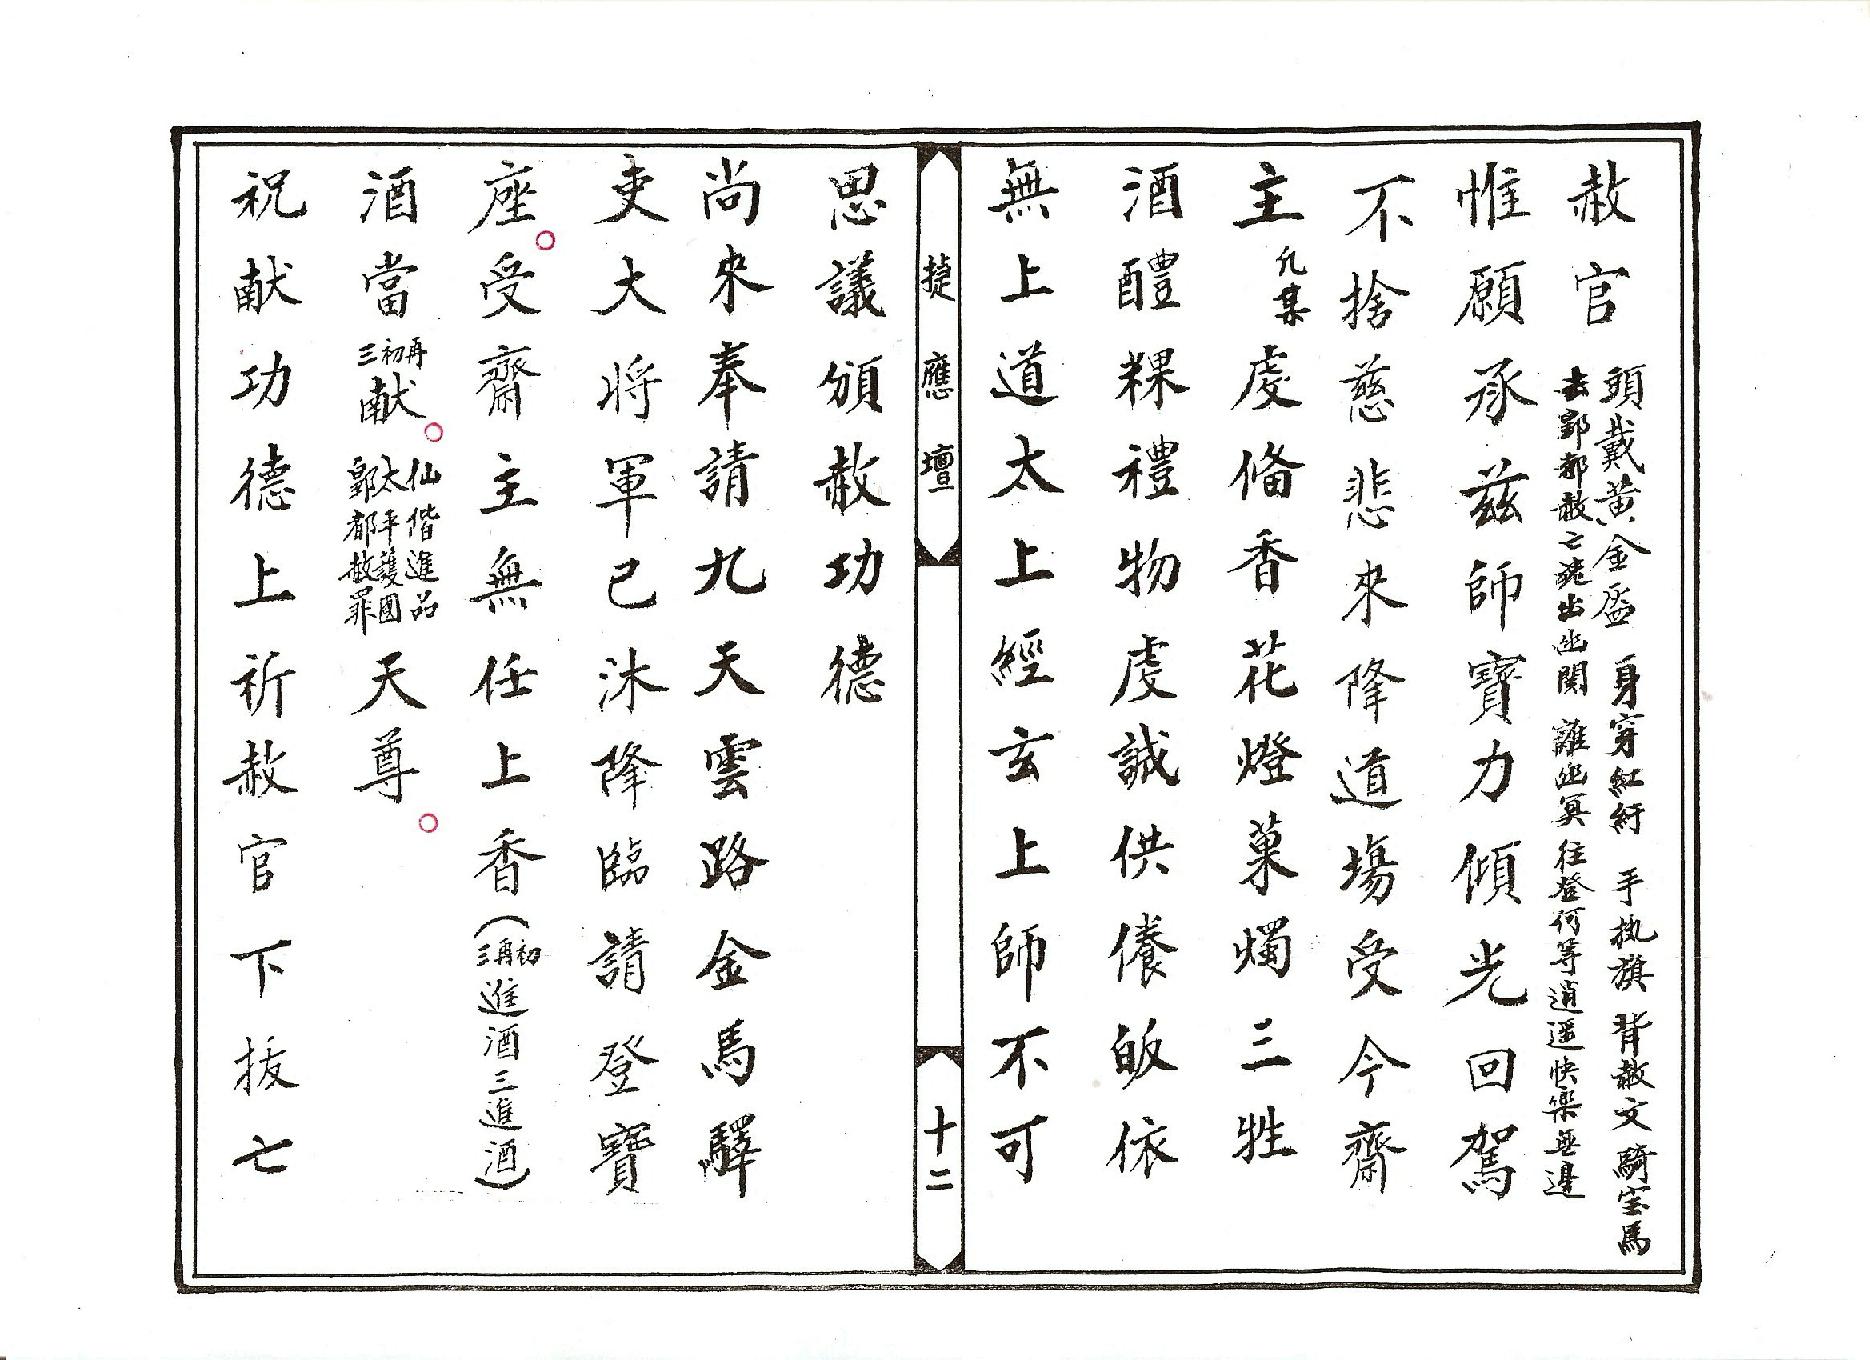 赦官 頭戴黄金盔 身穿紅 手执旗 背赦文騎宝馬
去酆都赦亡魂出幽関 離幽冥往登何等逍遥快樂無邊
惟願承兹師寶力傾光回駕
不捨慈悲來降道場受今齋
主凢某處俻香花燈菓燭三牲
酒醴粿禮物虔誠供養皈依
無上道太上經玄上師不可
捷應壇
十二
思議頒赦功德
尚來奉請九天雲路金馬驛
吏大將軍已沐降臨請登寶
座受齋主無任上香(初再三進酒三進酒)
酒當再初三献仙偕進品太平護國酆都赦罪天尊
祝献功德上祈赦官下拔七